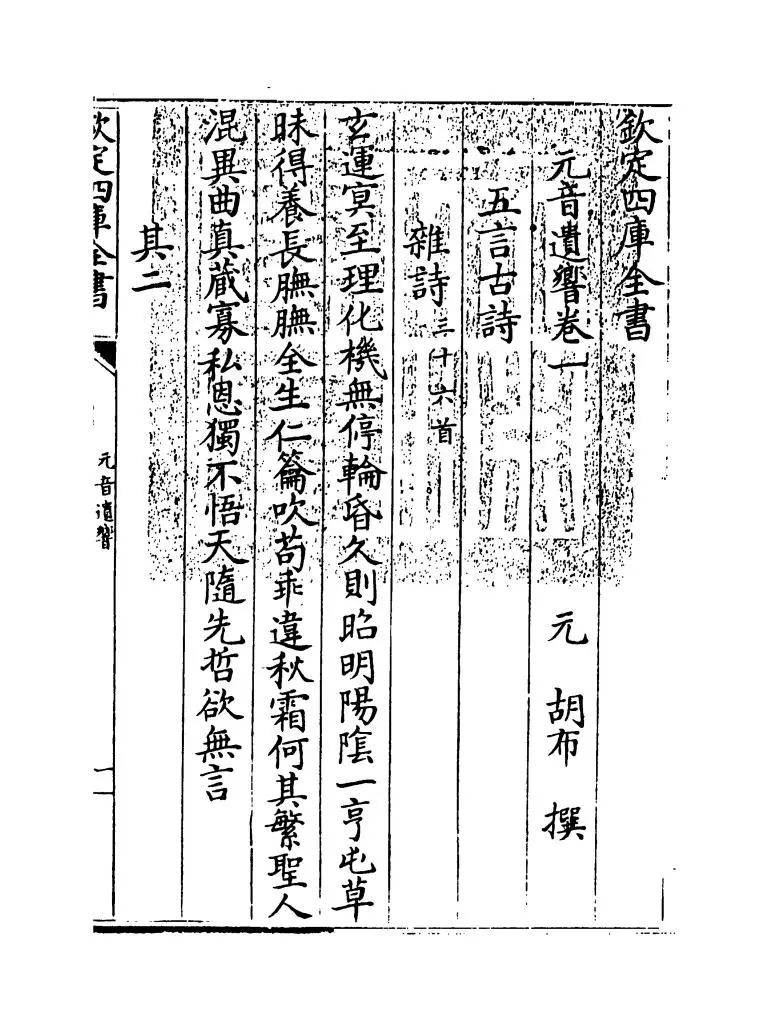 欽定四庫全書
元音遺響卷一
元 胡布 撰
五言古詩
雜詩三十六首
玄運冥至理化機無停輪昏久則昭明陽隂一亨屯草
昧得養長膴膴全生仁籥吹苟乖違秋霜何其繁聖人
混異曲真蔵寡私恩獨不悟天隨先哲欲無言
其二
欽定四庫全書
元音遺響
一